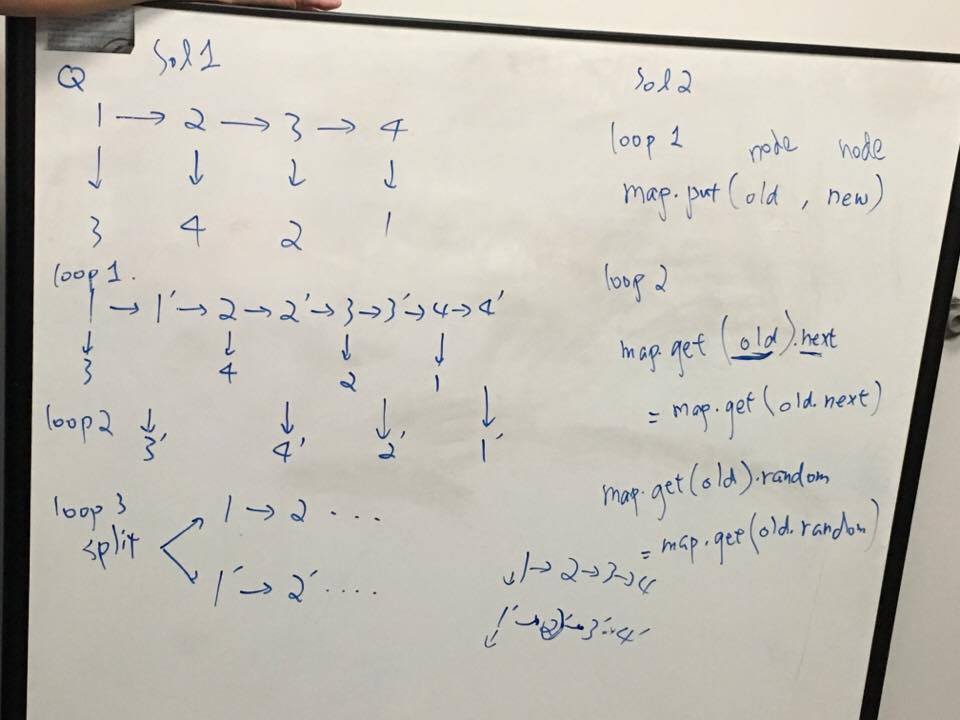 Sol 1
Q
1 → 2 → 3 → 4
↓ ↓ ↓ ↓
3 4 2 1
loop 1.
1 → 1′ → 2 → 2′ → 3 → 3′ → 4 → 4′
↓ ↓ ↓ ↓
3 4 2 1
loop 2 ↓ ↓ ↓ ↓
3′ 4′ 2′ 1′
loop 3
split
1 → 2 ....
1′ → 2′ ....
Sol 2
loop 1 node node
map.put(old , new)
loop 2
map.get (old).next
= map.get(old.next)
map.get(old).random
= map.get(old.random)
↓ 1 → 2 → 3 → 4
↓ 1′ → 2′ → 3′ → 4′